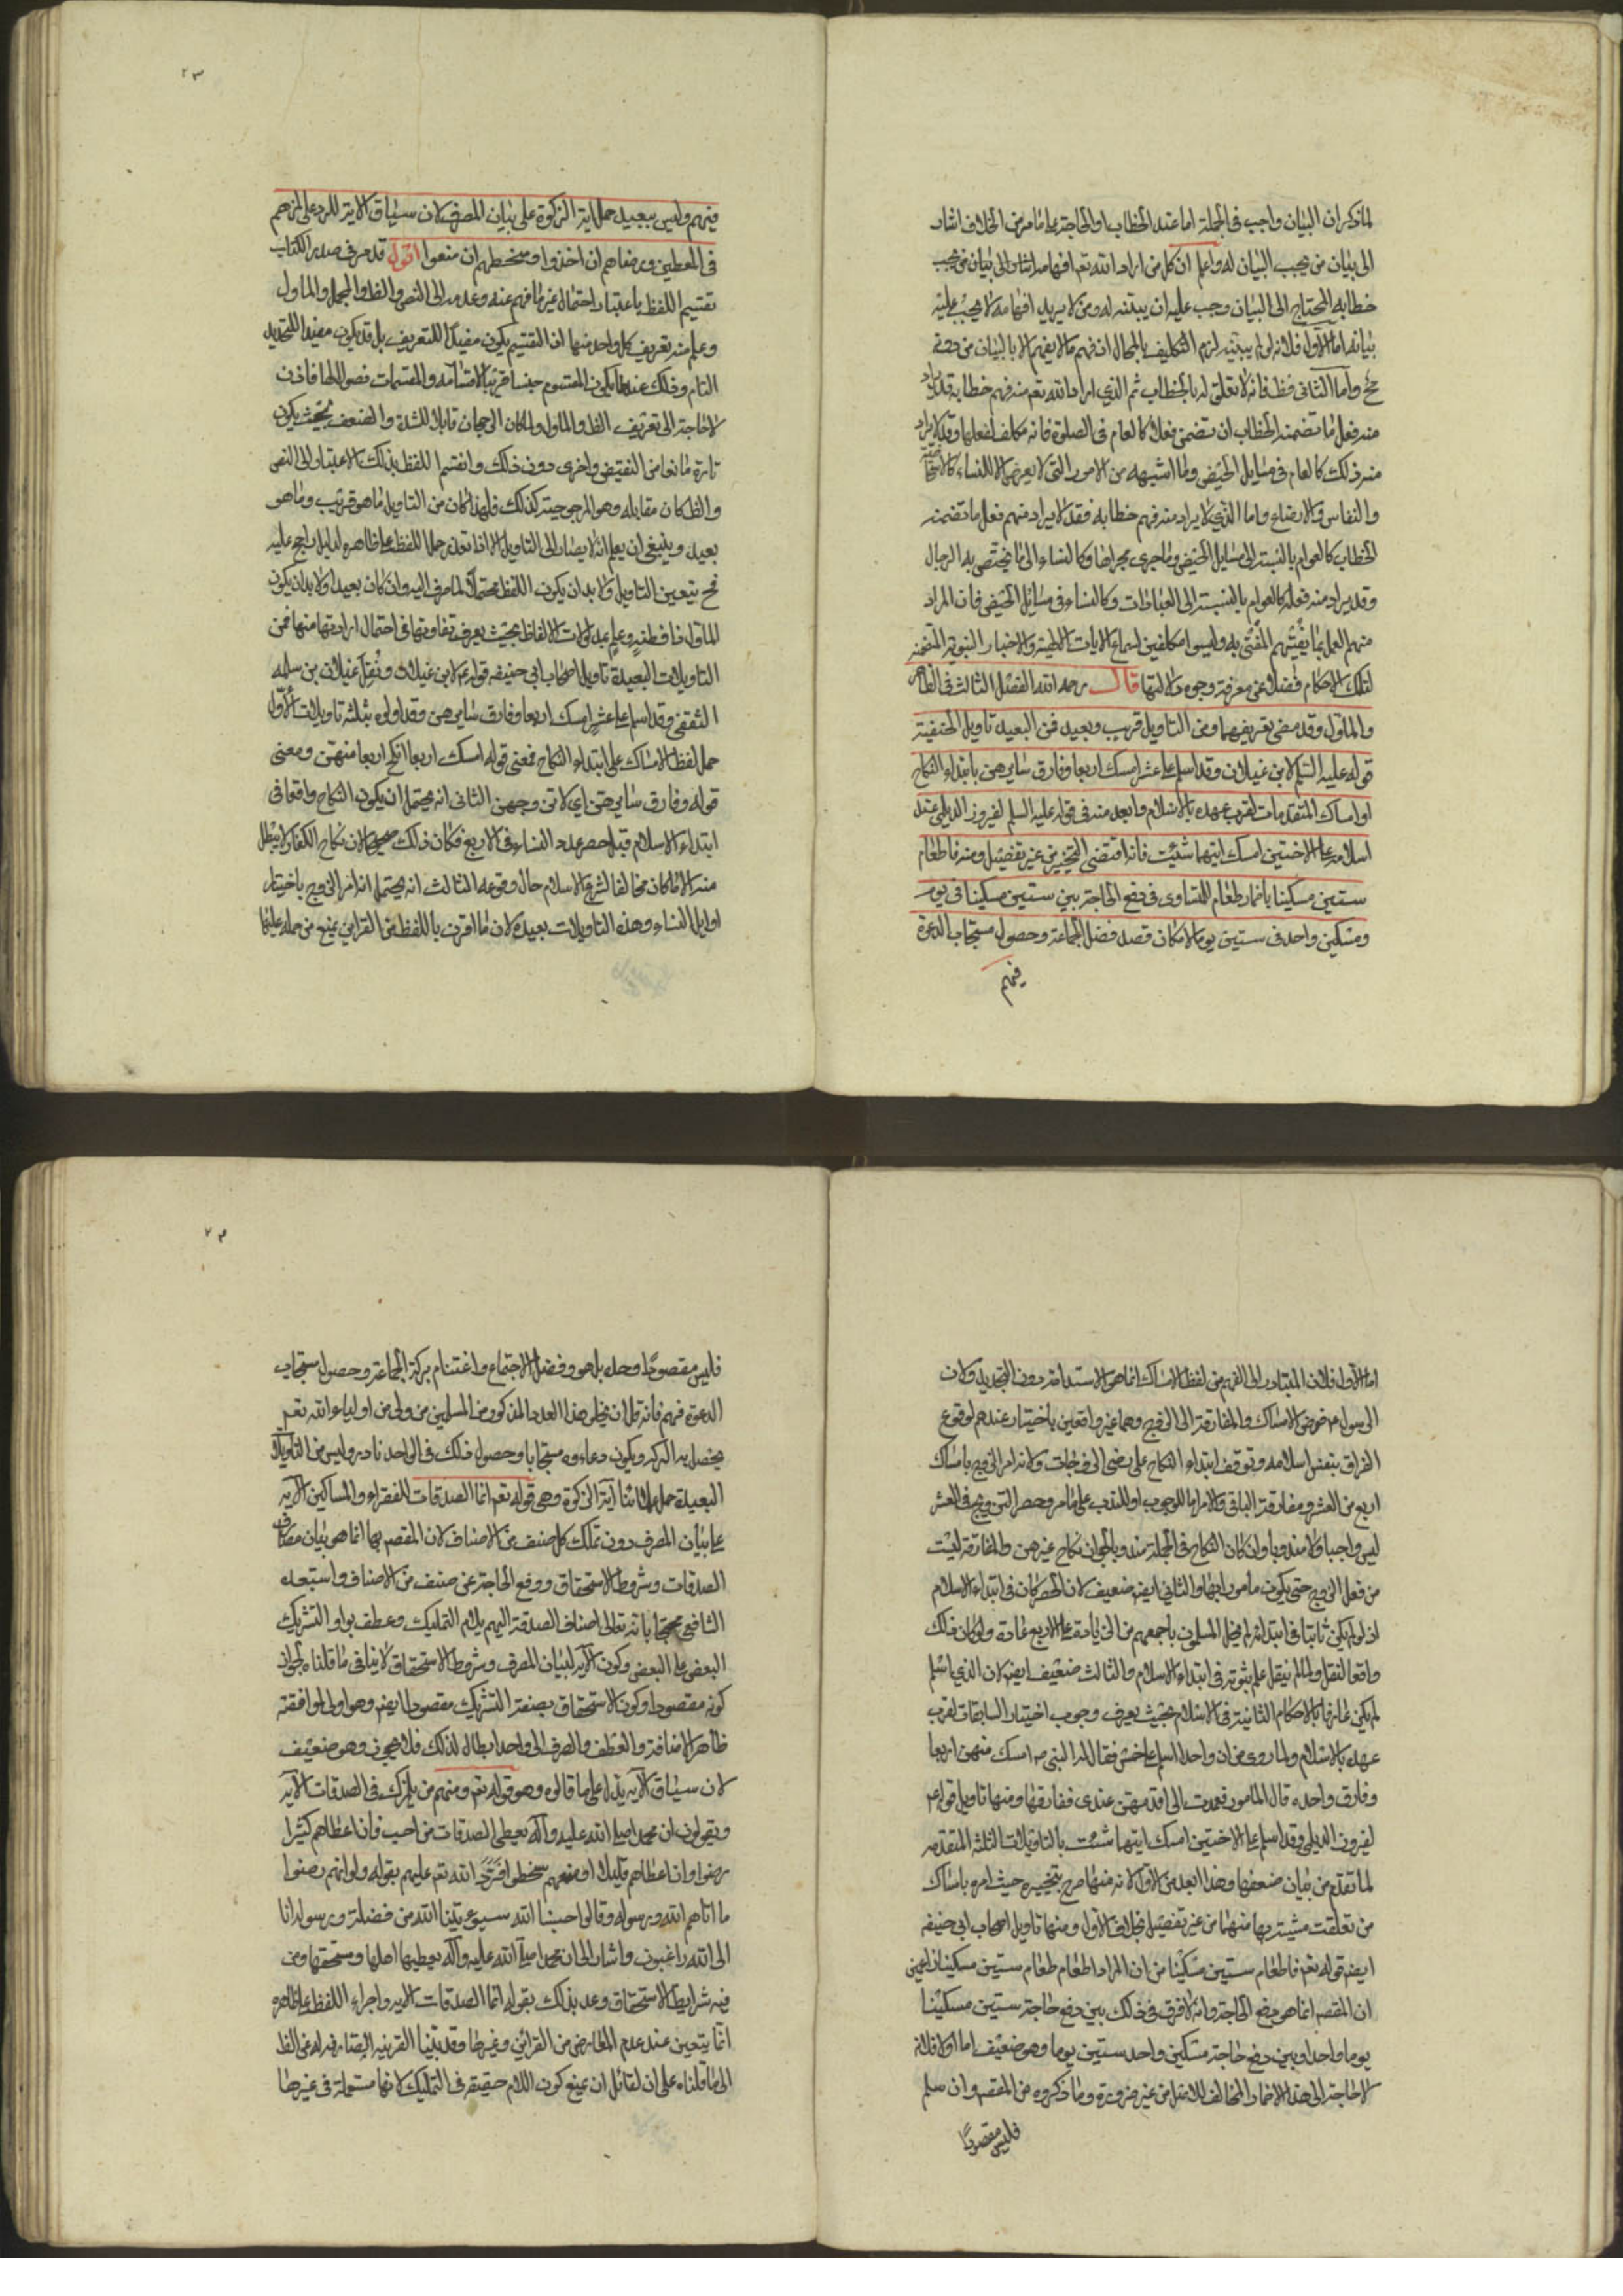 لما ذكر ان البيان واجب في الجملة اما عند الخطاب او الحاجة على ما مر من الخلاف اشار
الى بيان من يجب البيان له واعلم ان كل من اراد الله تع افهامه اشار الى بيان من يجب
خطابه المحتاج الى البيان وجب عليه ان يبينه له ومن لا يريد افهامه لا يجب عليه
بيانه اما الاول فلانه لو لم يبينه لزم التكليف بالمحال اذ فهم ما لا يفهم الا بالبيان من دونه
مح واما الثاني فظ فانه لا تعلق له بالخطاب ثم الذي اراد الله تع منه فهم خطابه قد يراد
منه فعل ما تضمنه الخطاب ان تضمن فعلا كالعالم في الصلوة فانه مكلف بفعلها وقد لا يراد
منه ذلك كالعالم في مسايل الحيض وما اشبهه من الامور التي لا يعرض الا للنساء كالاستحاضة
والنفاس والارضاع واما الذي لا يراد منه فهم خطابه فقد لا يراد منهم فعل ما تضمنه
الخطاب كالعوام بالنسبة الى مسايل الحيض وما جرى مجراها وكالنساء الى ما يختص به الرجال
وقد يراد منه فعله كالعوام بالنسبة الى العبادات وكالنساء في مسايل الحيض فان المراد
منهم العمل بما يفتيهم المفتي به وليسوا مكلفين بسماع الايات الالهية والاخبار النبوية المتضمنة
لتلك الاحكام فضلا عن معرفة وجوه دلالتها قال رحمه الله الفصل الثالث في الظاهر
والماول وقد مضى تعريفهما ومن التاويل قريب وبعيد فمن البعيد تاويل الحنفية
قوله عليه السلم لابن غيلان وقد اسلم على عشر امسك اربعا وفارق سايرهن بابتداء النكاح
او امساك المتقدمات لقرب عهده بالاسلام وابعد منه في قوله عليه السلم لفيروز الديلمي عند
اسلامه على الاختين امسك ايتهما شئت فانه اقتضى التخيير من غير تفصيل ومنه فاطعام
ستين مسكينا باضمار طعام للتساوى في دفع الحاجة بين ستين مسكينا في يوم
ومسكين واحد في ستين يوما لامكان قصد فضل الجماعة وحصول مستجاب الدعوة
فيهم
٢٣
فيهم وليس ببعيد حمل اية الزكوة على بيان المصرف لان سياق الاية للرد على لمزهم
في المعطين ورضاهم ان اخذوا وسخطهم ان منعوا اقول قد مر في صدر الكتاب
تقسيم اللفظ باعتبار احتماله غير ما فهم عنه وعدمه الى النص والظ والمجمل والماول
وعلم منه تعريف كل واحد منها اذ التقسيم يكون مفيدا للتعريف بل قد يكون مفيدا للتحديد
التام وذلك عندما يكون المقسوم جنسا قريبا لاقسامه والمقسمات فصول لها فاذن
لا حاجة الى تعريف الظ والماول ولما كان الرجحان قابلا للشدة والضعف بحيث يكون
تارة مانعا من النقيض واخرى دون ذلك وانقسم اللفظ بذلك الاعتبار الى النص
والظ كان مقابله وهو المرجوحية كذلك فلهذا كان من التاويل ما هو قريب وما هو
بعيد وينبغي ان يعلم انه لا يصار الى التاويل الا اذا تعذر حمل اللفظ على ظاهره لدليل راجح عليه
فح يتعين التاويل ولا بد ان يكون اللفظ محتملا لما صرف اليه وان كان بعيدا ولا بد ان يكون
للماول فطنة وعلم بمدلولات الالفاظ بحيث يعرف تفاوتها في احتمال ارادتها منها فمن
التاويلات البعيدة تاويل اصحاب ابي حنيفه قوله عم لابن غيلان ونقل غيلان بن سلمه
الثقفي وقد اسلم على عشر امسك اربعا وفارق سايرهن وقد اولوه بثلثة تاويلات الاول
حمل لفظ الامساك على ابتداء النكاح فمعنى قوله امسك اربعا انكح اربعا منهن ومعنى
قوله وفارق سايرهن اي لا تزوجهن الثاني انه يحتمل ان يكون النكاح واقعا في
ابتداء الاسلام قبل حصر عدد النساء في الاربع فكان ذلك صحيحا لان نكاح الكفار لا يبطل
منه الا ما كان مخالفا لشرع الاسلام حال وقوعه الثالث انه يحتمل انه امر الزوج باختيار
اوايل النساء وهذه التاويلات بعيدة لان ما اقترن باللفظ من القراين يمنع من حمله عليها
اما الاول فلان المتبادر الى الفهم من لفظ الامساك انما هو الاستدامة دون التجديد ولان
الرسول عم فوض الامساك والمفارقة الى الزوج وهما غير واقعين باختياره عندهم لوقوع
الفراق بنفس اسلامه وتوقف ابتداء النكاح على رضى الزوجات ولانه امر الزوج بامساك
اربع من العشر ومفارقة الباقي والامر اما للوجوب او للندب على ما مر وحصر التزويج في العشر
ليس واجبا ولا مندوبا وان كان النكاح في الجملة مندوبا لجواز نكاح غيرهن والمفارقة ليست
من فعل الزوج حتى يكون مامورا بها والثاني ايضا ضعيف لان الحصر كان في ابتداء الاسلام
اذ لو لم يكن ثابتا في ابتدائه لم يخل المسلمون باجمعهم من الزيادة على الاربع عادة ولو كان ذلك
واقعا لنقل ولما لم ينقل علم ثبوته في ابتداء الاسلام والثالث ضعيف ايضا لان الذي اسلم
لم يكن عارفا بالاحكام الثابتة في الاسلام بحيث يعرف وجوب اختيار السابقات لقرب
عهده بالاسلام ولما روي من ان واحدا اسلم على خمس فقال له النبي صم امسك منهن اربعا
وفارق واحده قال المامور فعمدت الى اقدمهن عندى ففارقتها ومنها تاويل قوله عم
لفيروز الديلمي وقد اسلم على الاختين امسك ايتهما شئت بالتاويلات الثلثة المتقدمه
لما تقدم من بيان ضعفها وهذا ابعد من الاول لانه منها صرح بتخييره حيث امره بامساك
من تعلقت مشيته بها منهما من غير تفصيل بخلاف الاول ومنها تاويل اصحاب ابي حنيفه
ايضا قوله تع فاطعام ستين مسكينا من ان المراد اطعام طعام ستين مسكينا زاعمين
ان المقصود انما هو دفع الحاجة وانه لا فرق في ذلك بين دفع حاجة ستين مسكينا
يوما واحدا وبين دفع حاجة مسكين واحد ستين يوما وهو ضعيف اما اولا فلانه
لا حاجة الى هذا الاضمار المخالف للاصل من غير ضرورة وما ذكروه من المقصود ان سلم
فليس مقصودا
فليس مقصودا وحده بل هو وفضل الاجتماع واغتنام بركة الجماعة وحصول مستجاب
الدعوة فيهم فانه قل ان يخلى هذا العدد المذكور من المسلمين من ولي من اولياء الله تع
يحصل به البركه ويكون دعاءه مستجابا وحصول ذلك في الواحد نادر وليس من التاويلات
البعيدة حمل علمائنا آية الزكوة وهي قوله تع انما الصدقات للفقراء والمساكين الآيه
على بيان المصرف دون تملك كل صنف من الاصناف لان المقصود بها انما هو بيان مصارف
الصدقات وشروط الاستحقاق ودفع الحاجة عن صنف من الاصناف واستبعده
الشافعي محتجا بانه تعالى اضاف الصدقة اليهم بلام التمليك وعطف بواو التشريك
البعض على البعض وكون الآيه لبيان المصرف وشروط الاستحقاق لا ينافي ما قلناه لجواز
كونه مقصودا وكون الاستحقاق بصفة التشريك مقصودا ايضا وهو اولى لموافقة
ظاهر الاضافة والعطف والصرف الى واحد ابطال لذلك فلا يجوز وهو ضعيف
لان سياق الآيه يدل على ما قالوه وهو قوله تع ومنهم من يلمزك في الصدقات الآيه
ويقولون ان محمدا صلى الله عليه وآله يعطي الصدقات من احب فان اعطاهم كثيرا
رضوا وان اعطاهم قليلا او منعهم سخطوا فرد الله تع عليهم بقوله ولو انهم رضوا
ما اتاهم الله ورسوله وقالوا حسبنا الله سيؤتينا الله من فضله ورسوله انا
الى الله راغبون واشار الى ان محمدا صلى الله عليه وآله يعطيها اهلها ومستحقها ومن
فيه شرايط الاستحقاق وعد بذلك بقوله انما الصدقات الآيه واجراء اللفظ على ظاهره
انما يتعين عند عدم المعارض من القرائن وغيرها وقد بينا القرينه الصارفه له عن الظ
الى ما قلناه على ان لقائل ان يمنع كون اللام حقيقه في التمليك لانها مستعملة في غيرها